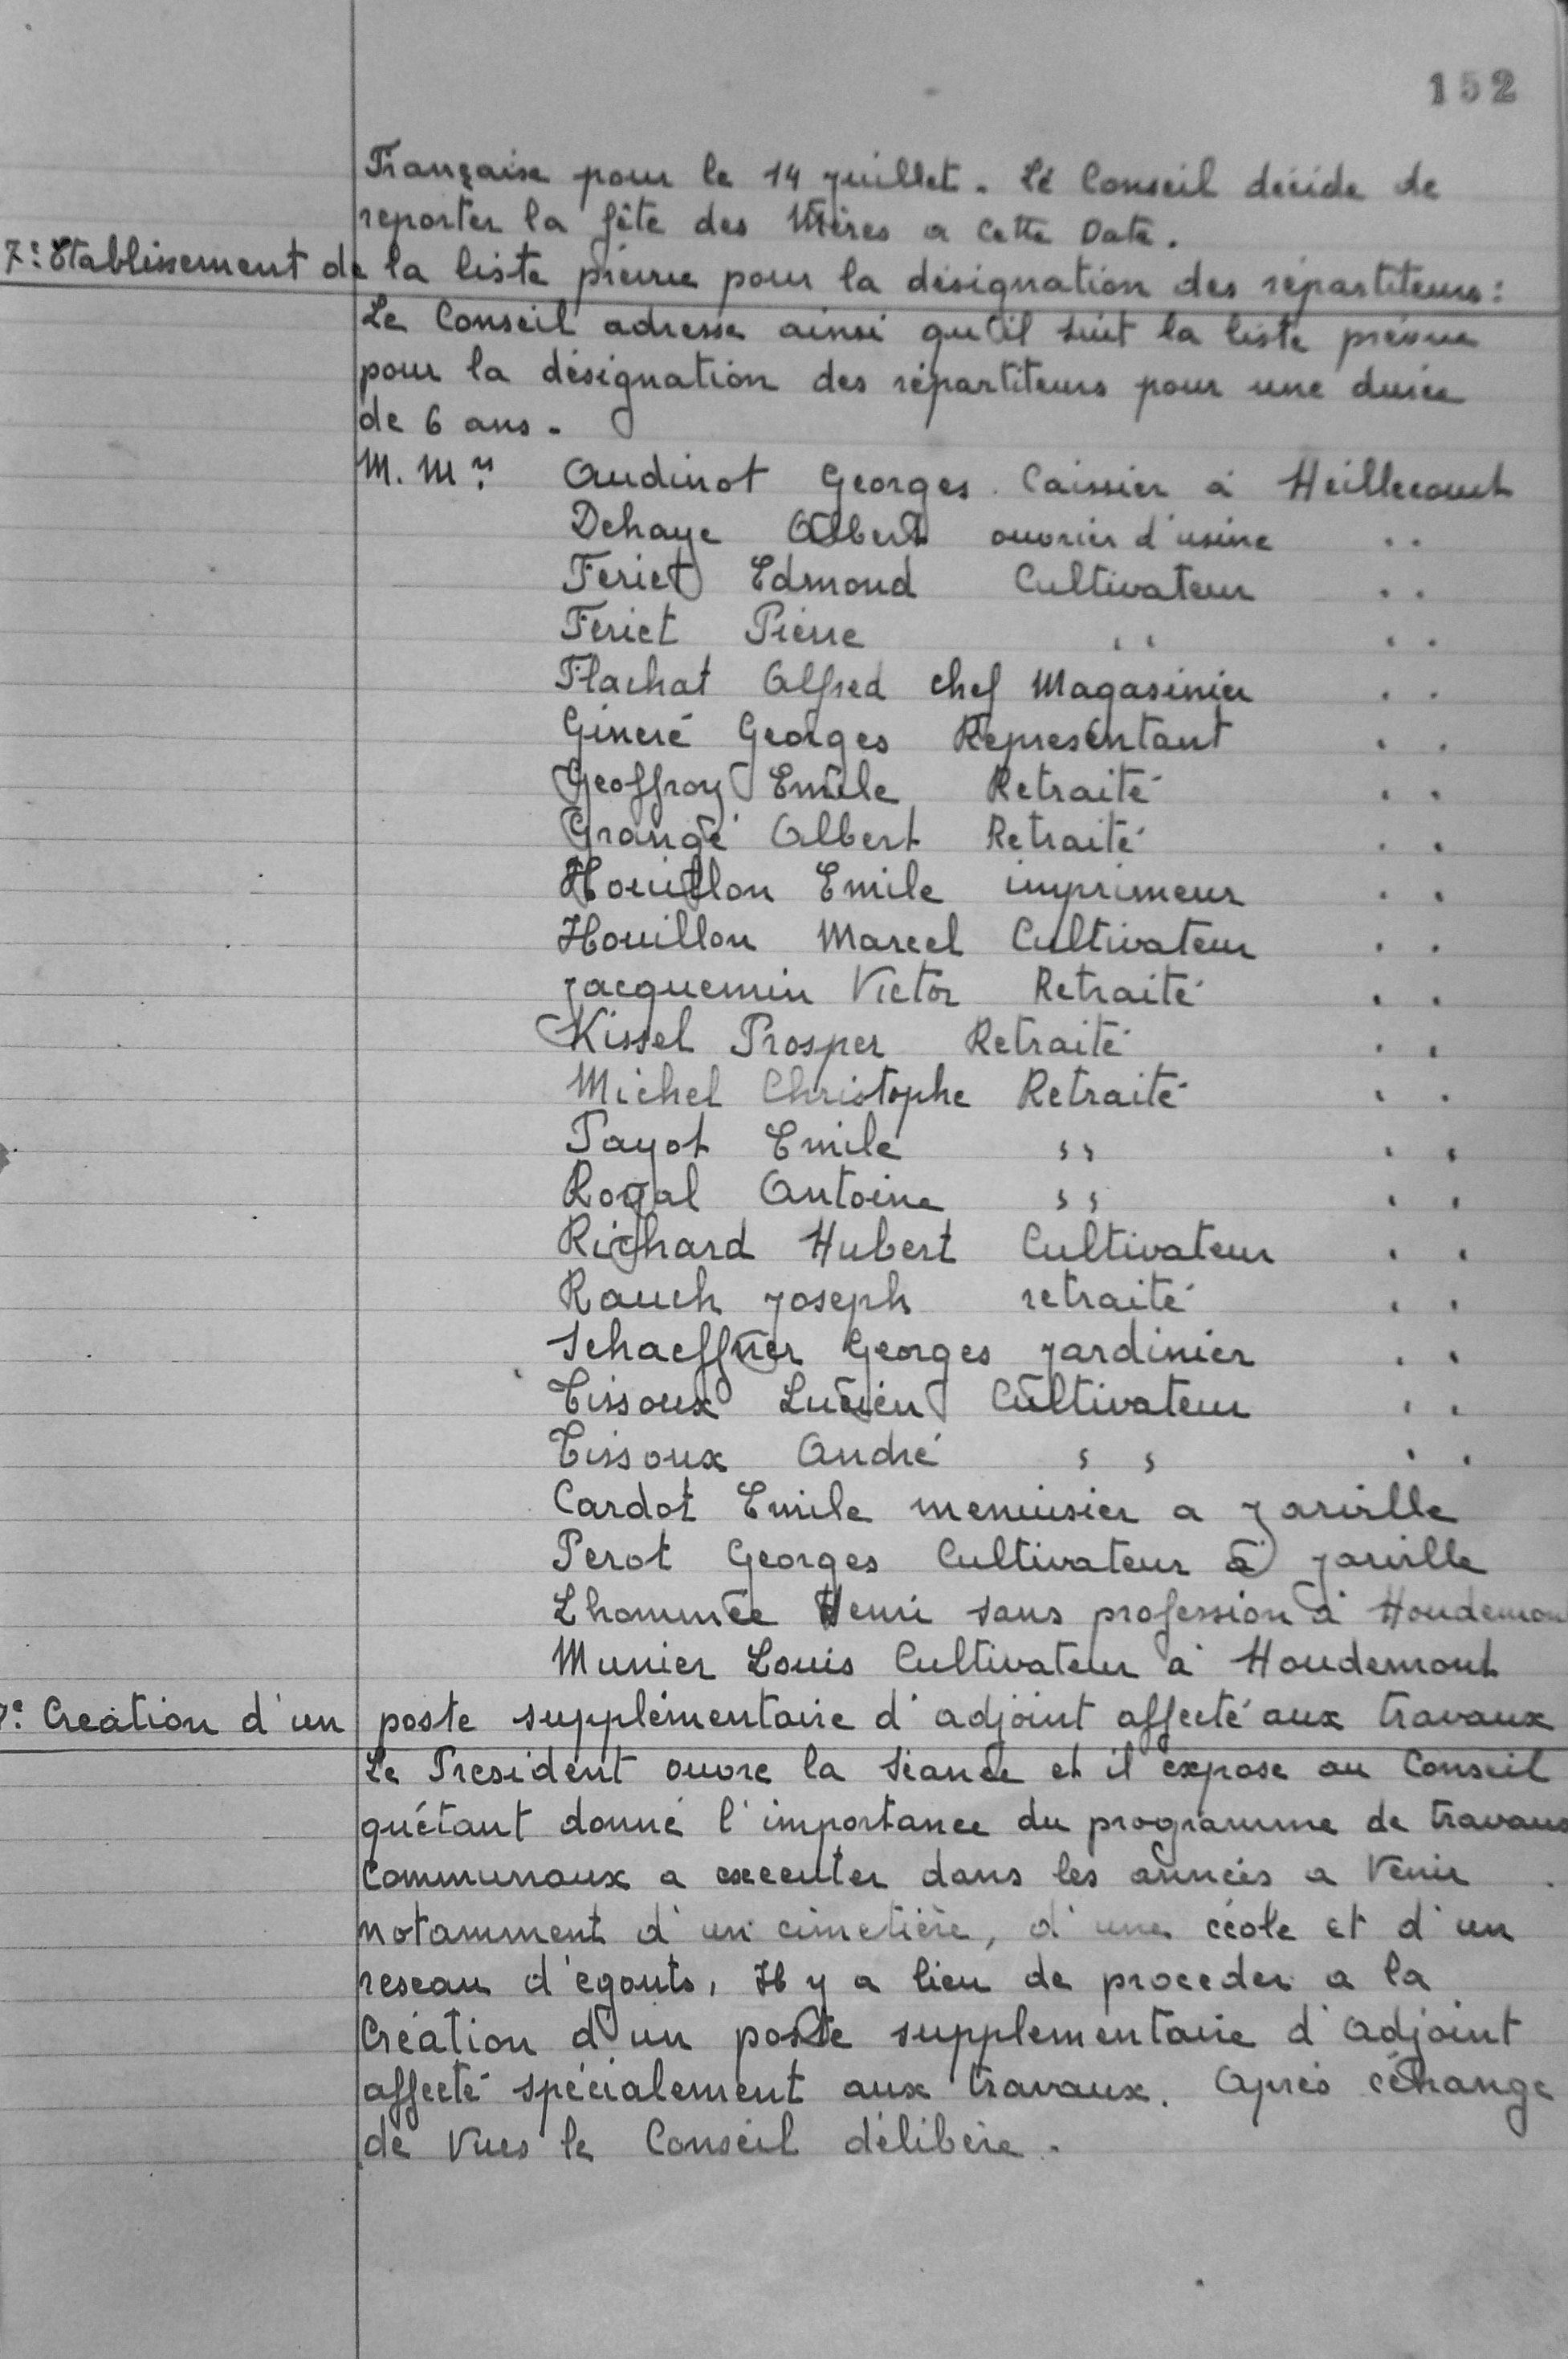 152
Française pour le 14 juillet. Le Conseil décide de
reporter la fête des Mères a cette Date.
7: Etablissement de la liste prévue pour la désignation des répartiteurs:
Le Conseil adresse ainsi qu'il suit la liste prévue
pour la désignation des répartiteurs pour une durée
de 6 ans.
M. Mrs Audinot Georges Caissier à Heillecourt
Dehaye Albert ouvrier d'usine ..
Feriet Edmond Cultivateur ..
Feriet Pierre ,, ..
Flachat Alfred chef Magasinier ..
Gineré Georges Représentant ..
Geoffroy Emile Retraité ..
Grangé Albert Retraité ..
Houillon Emile imprimeur ..
Houillon Marcel Cultivateur ..
Jacquemin Victor Retraité ..
Kissel Prosper Retraité ..
Michel Christophe Retraité ..
Payot Emile ,, ..
Royal Antoine ,, ..
Richard Hubert Cultivateur ..
Rauch Joseph retraité ..
Schaeffner Georges Jardinier ..
Tissoux Lucien Cultivateur ..
Tissoux André ,, ..
Cardot Emile menuisier a Jarville
Perot Georges Cultivateur à Jarville
Lhommée Henri sans profession à Houdemon
Munier Louis Cultivateur à Houdemont
Création d'un poste supplémentaire d'adjoint affecté aux travaux
Le President ouvre la séance et il expose au Conseil
qu'étant donné l'importance du programme de travaux
Communaux a executer dans les années a Venir
notamment d'un cimetière, d'une école et d'un
reseau d'égouts, Il y a lieu de proceder a la
Création d'un poste supplementaire d'Adjoint
affecté spécialement aux travaux. Après échange
de Vues le Conseil délibère.